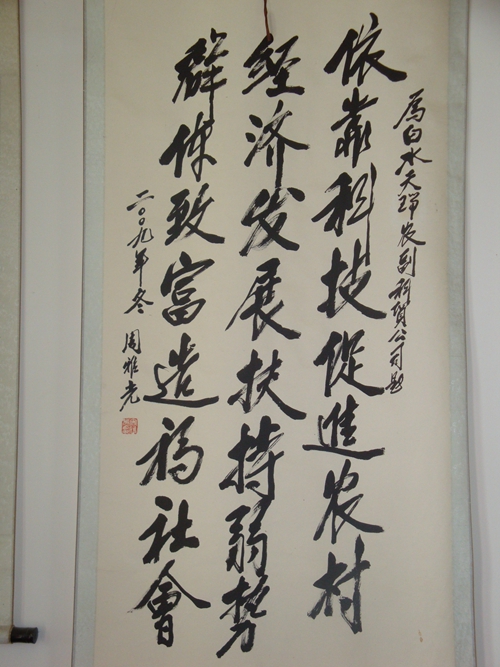 為白水天瑞农副科贸公司题
依靠科技促進农村
经济发展扶持弱势
群体致富造福社會
二〇〇九年冬 周雅光